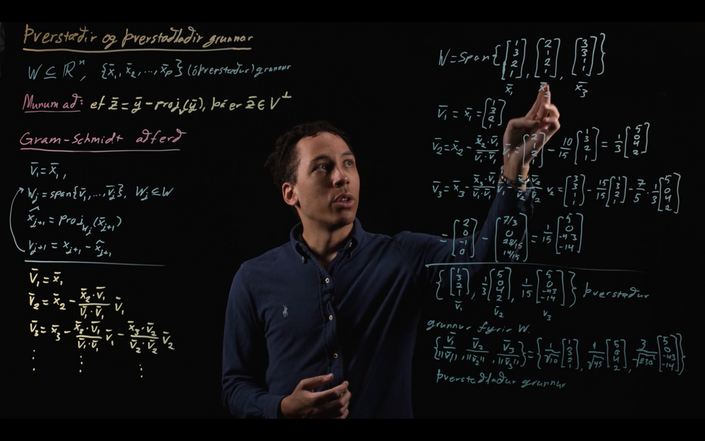 Þverstæðir og þverstaðlaðir grunnar
W ⊆ ℝⁿ, {x̄₁, x̄₂, ..., x̄ₚ} (óþverstæður) grunnur
Munum að: ef z̄ = ȳ - projᵥ(ȳ), þá er z̄ ∈ V^⊥
Gram-Schmidt aðferð
v̄₁ = x̄₁,
Wⱼ = span{v̄₁, ..., v̄ⱼ}, Wⱼ ⊆ W
x̂ⱼ₊₁ = proj_Wⱼ(x̄ⱼ₊₁)
v̄ⱼ₊₁ = xⱼ₊₁ - x̂ⱼ₊₁
v̄₁ = x̄₁
v̄₂ = x̄₂ - (x̄₂·v̄₁)/(v̄₁·v̄₁) v̄₁
v̄₃ = x̄₃ - (x̄₃·v̄₁)/(v̄₁·v̄₁) v̄₁ - (x̄₃·v̄₂)/(v̄₂·v̄₂) v̄₂
⋮ ⋮ ⋮
W = span{[1 3 2 1], [2 1 2 1], [3 3 1 1]}
x̄₁ x̄₂ x̄₃
v̄₁ = x̄₁ = [1 3 2 1]
v̄₂ = x̄₂ - (x̄₂·v̄₁)/(v̄₁·v̄₁) v̄₁ = - 10/15 [1 3 2 1] = 1/3 [5 0 4 2]
v̄₃ = x̄₃ - v₂ = [3 3 1 1] - 15/15 [1 3 2 1] - 7/5 · 1/3 [5 0 4 2]
= [2 0 -1 0] - = 1/15 [5 0 -43 -14]
{[1 3 2 1], 1/3 [5 0 4 2], 1/15 [5 0 -43 -14]} þverstæður
v̄₁ v̄₂ v̄₃
grunnur fyrir W.
{v̄₁/||v̄₁||, v̄₂/||v̄₂||, v̄₃/||v̄₃||} = {[1 3 2 1], 1/√45 [5 0 4 2], [5 0 -43 -14]}
þverstaðlaður grunnur